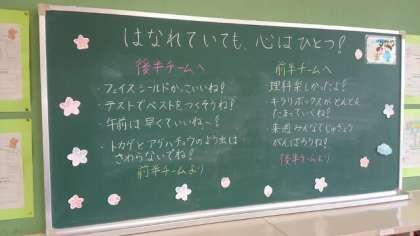 はなれていても、心はひとつ!
後半チームへ
・フェイスシールドかっこいいね!
・テストでベストをつくそうね!
・午前は早くていいね〜!
・トカゲとアゲハチョウのよう虫は
さわらないでね!
前半チームより
前半チームへ
理科楽しかったよ!
キラリボックスがどんどん
たまっていくね!
・来週みんなでじゅぎょう
がんばろうね!
後半チームより